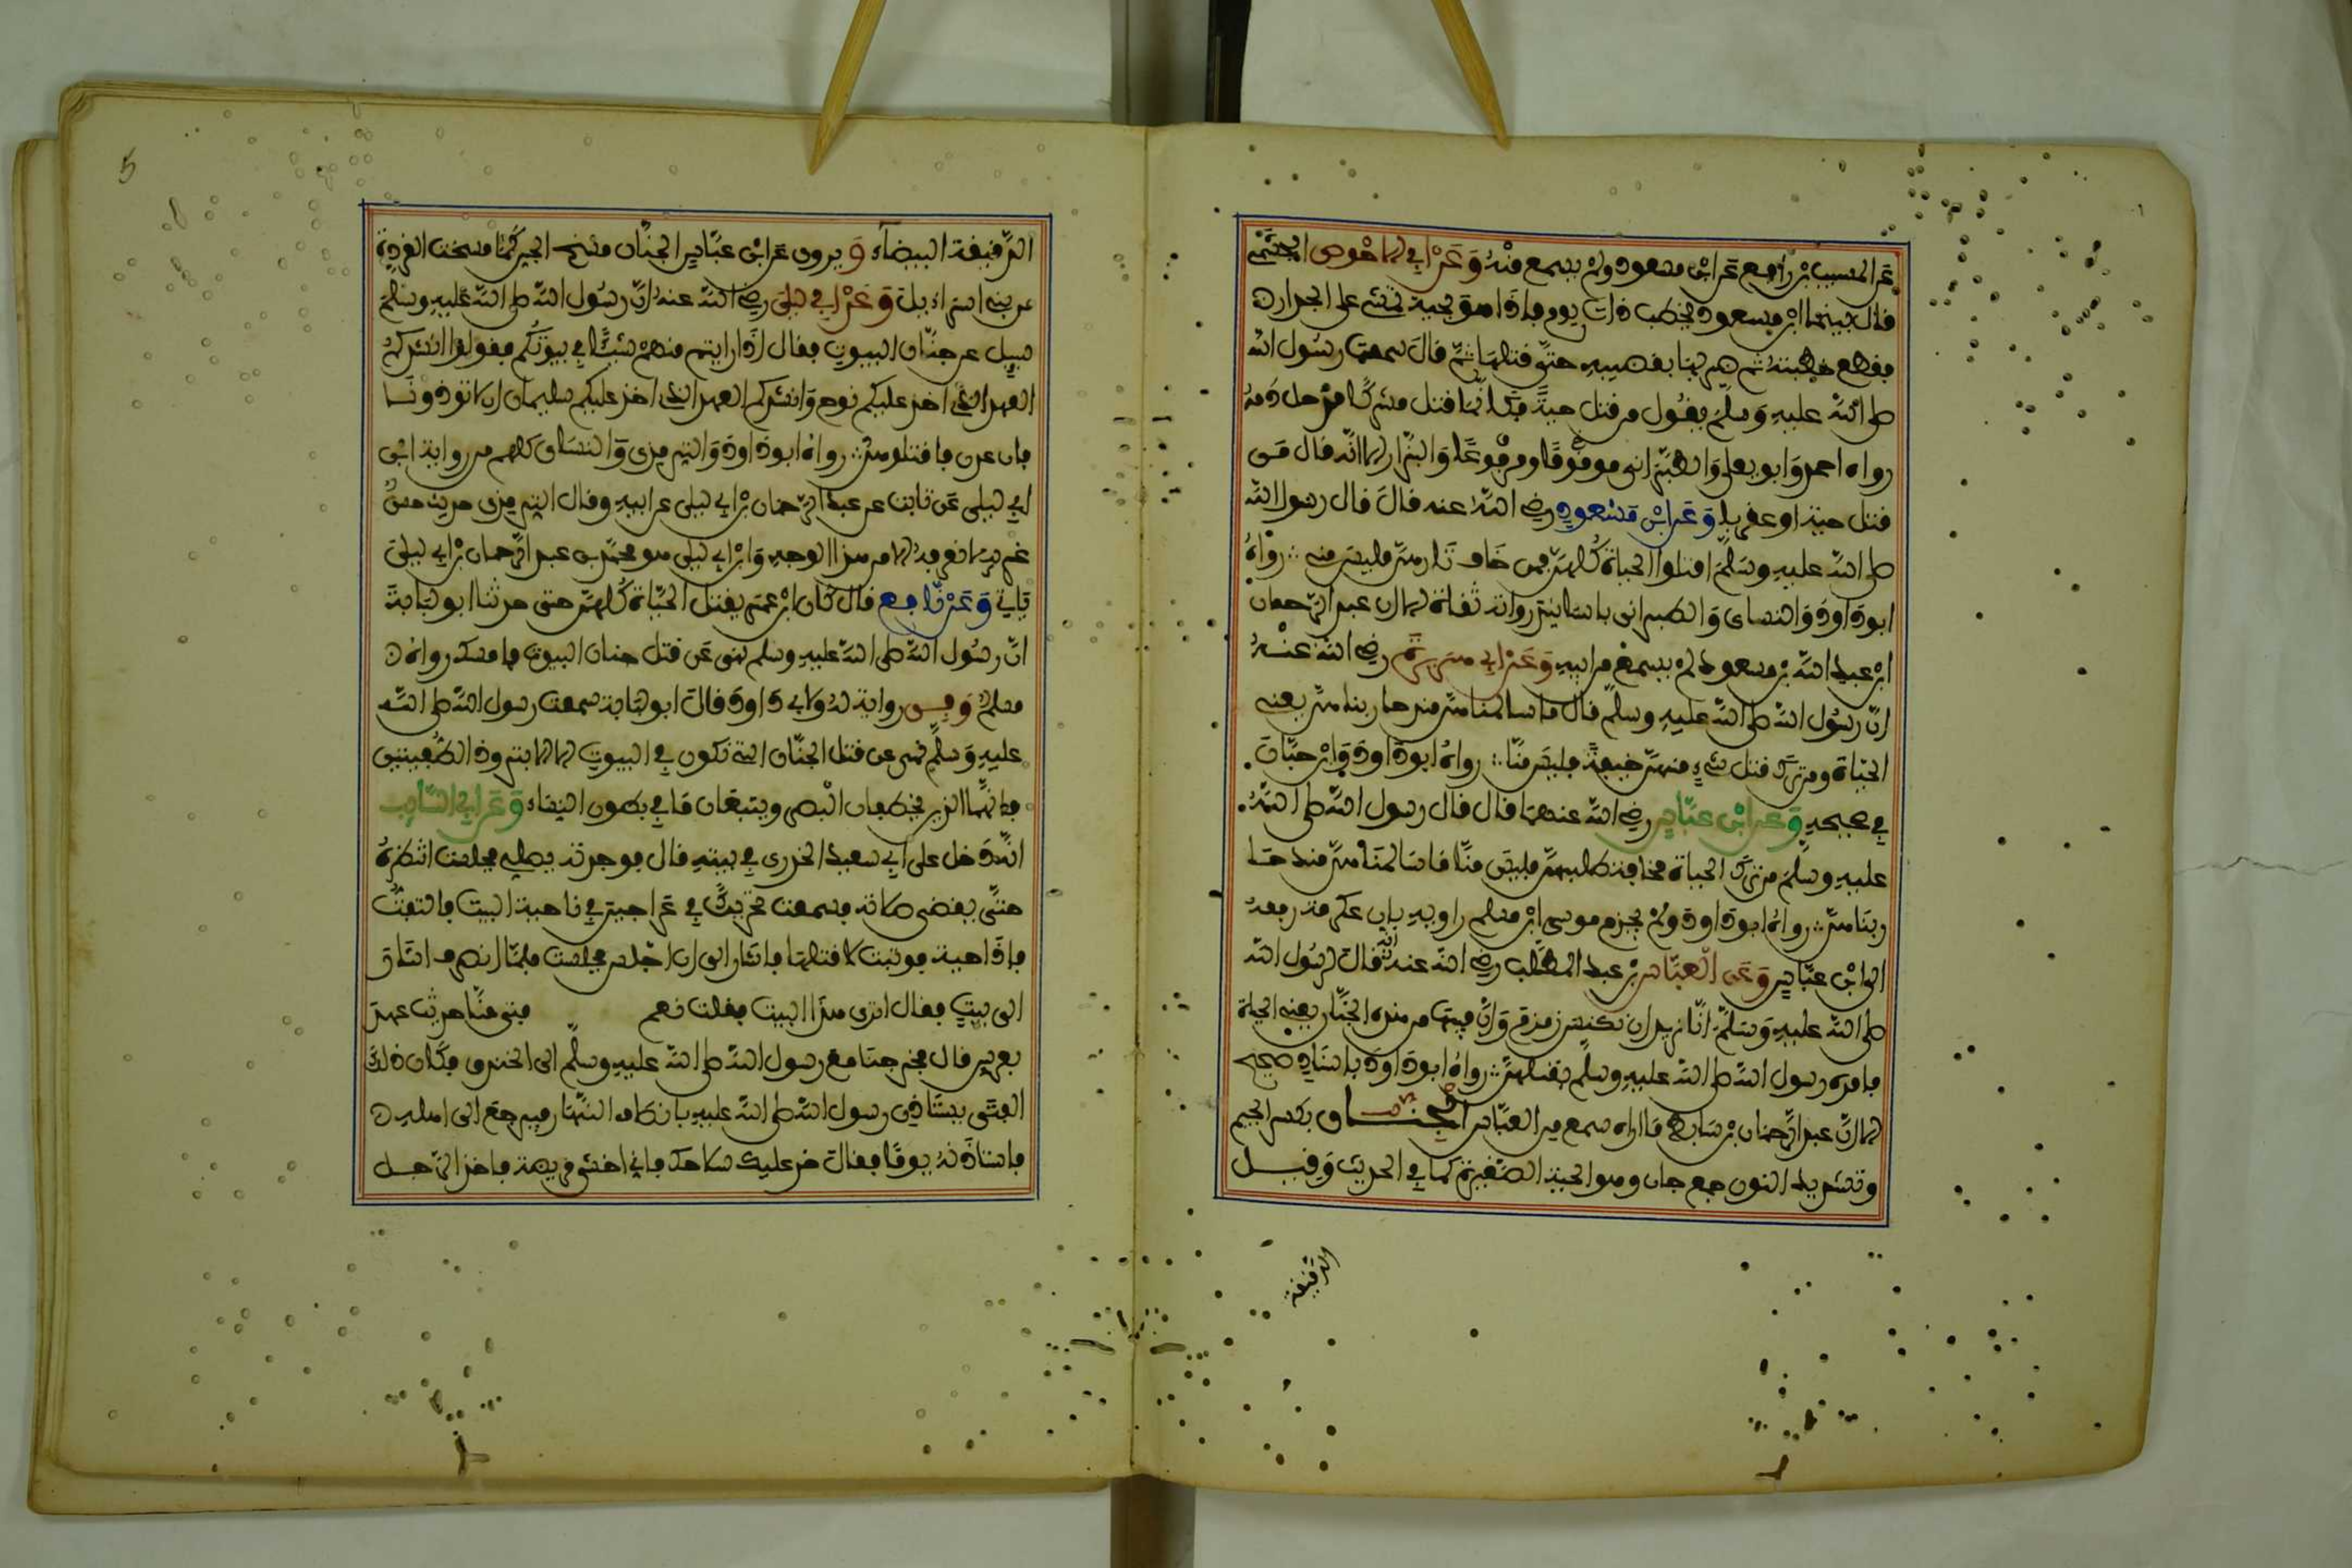 عن المسيب بن رافع عن ابن مسعود ولم يسمع منه وَعَنْ ابي الاحْوص الجشمي
قال بينما ابن مسعود يخطب ذات يوم فإذا هو بحية تمشي على الجدار
فقطع خطبته ثم ضربها بقضيبه حتى قتلها ثم قال سمعت رسول الله
صلى الله عليه وسلم يقول من قتل حية فكأنما قتل مشركا قد حل دمه
رواه احمد وابو يعلى والطبراني موقوفا ومرفوعا والبزار الا انه قال من
قتل حية او عقربا وَعَن ابن مسْعود رضي الله عنه قال قال رسول الله
صلى الله عليه وسلم اقتلوا الحياة كلهن فمن خاف ثارهن فليس مني رواه
ابو داود والنساي والطبراني باسانيد رواته ثقات الا ان عبد الرحمان
ابن عبد الله بن مسعود لم يسمع من ابيه وَعَنْ ابي هريرة رضي الله عنه
ان رسول الله صلى الله عليه وسلم قال ما سالمناهن منذ حاربناهن يعني
الحياة ومن ترك قتل شيء منهن خيفة فليس منا رواه ابو داود وابن حبان
في صحيحه وَعن ابن عبّاس رضي الله عنهما قال قال رسول الله صلى الله
عليه وسلم من ترك الحياة مخافة طلبهن فليس منا ما سالمناهن منذ حا
ربناهن رواه ابو داود ولم يجزم موسى ابن مسلم راويه بان عكرمة رفعه
الى ابن عباس وَعَن الْعبّاس بن عبد المطلب رضي الله عنه انه قال لرسول الله
صلى الله عليه وسلم انا نريد ان نكنس زمزم وان فيها من هذه الجنان يعني الحياة
فامره رسول الله صلى الله عليه وسلم بقتلهن رواه ابو داود باسناد صحيح
الا ان عبد الرحمان بن سابط ما اراه سمع من العباس الجنان بكسر الجيم
وتشديد النون جمع جان وهو الحية الصغيرة كما في الحديث وقيل
الدقيقة
5
الدقيقة البيضاء وَ يروى عن ابن عباس الجنان مسخ الجن كما مسخت القردة
من بني اسراءيل وَعَنْ ابي ليلى رضي الله عنه ان رسول الله صلى الله عليه وسلم
سيل عن جنان البيوت فقال اذا رايتم منهم شيئا في بيوتكم فقولوا انشدكم
العهد الذي اخذ عليكم نوح وانشدكم العهد الذي اخذ عليكم سليمان ان لا توذونا
فان عدن فاقتلوهن رواه ابو داود والترمذي والنساي كلهم من رواية ابن
ابي ليلى عن ثابت عن عبد الرحمان بن ابي ليلى عن ابيه وقال الترمذي حديث حسن
غريب لا نعرفه الا من هذا الوجه وابن ابي ليلى هو محمد بن عبد الرحمان بن ابي ليلى
ياتي وَعَنْ نَافِع قال كان ابن عمر يقتل الحياة كلهن حتى حدثنا ابو لبابة
ان رسول الله صلى الله عليه وسلم نهى عن قتل جنان البيوت فامسك رواه
مسلم وَفِي رواية له ولابي داود قال ابو لبابة سمعت رسول الله صلى الله
عليه وسلم نهى عن قتل الجنان التي تكون في البيوت الا الابتر وذا الطفيتين
فانهما اللذين يخطفان البصر ويتبعان ما في بطون النساء وَعَن ابي السّايب
انه دخل على ابي سعيد الخدري في بيته قال فوجدته يصلي فجلست انتظره
حتى يقضي صلاته فسمعت تحريكا في عراجين في ناحية البيت فالتفت
فإذا حية فوثبت لا قتلها فاشار الي ان اجلس فجلست فلما انصرف اشار
الى بيت فقال اترى هذا البيت فقلت نعم فتى منا حديث عهد
بعرس قال فخرجنا مع رسول الله صلى الله عليه وسلم الى الخندق فكان ذلك
الفتى يستاذن رسول الله صلى الله عليه بانصاف النهار فيرجع الى اهله
فاستاذنه يوما فقال خذ عليك سلاحك فاني اخشى قريظة فاخذ الرجل